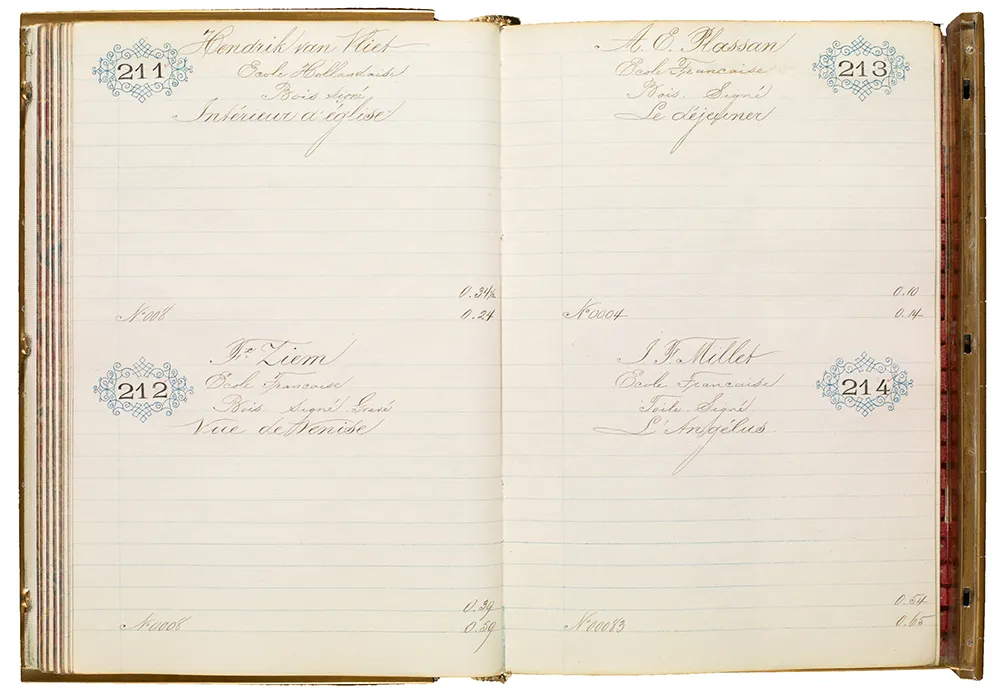 211
Hendrik van Vliet
Ecole Hollandaise
Bois Signé
Intérieur d'église
0.34½
No 008 0.24
212
Fx Ziem
Ecole Francaise
Bois Signé Gravé
Vue de Venise
0.39
No 0008 0.59
A. E. Plassan
213
Ecole Francaise
Bois. Signé
Le déjeuner
0.10
No 0004 0.14
J. F. Millet
214
Ecole Francaise
Toile Signé
L'Angélus
0.54
No 00083 0.65